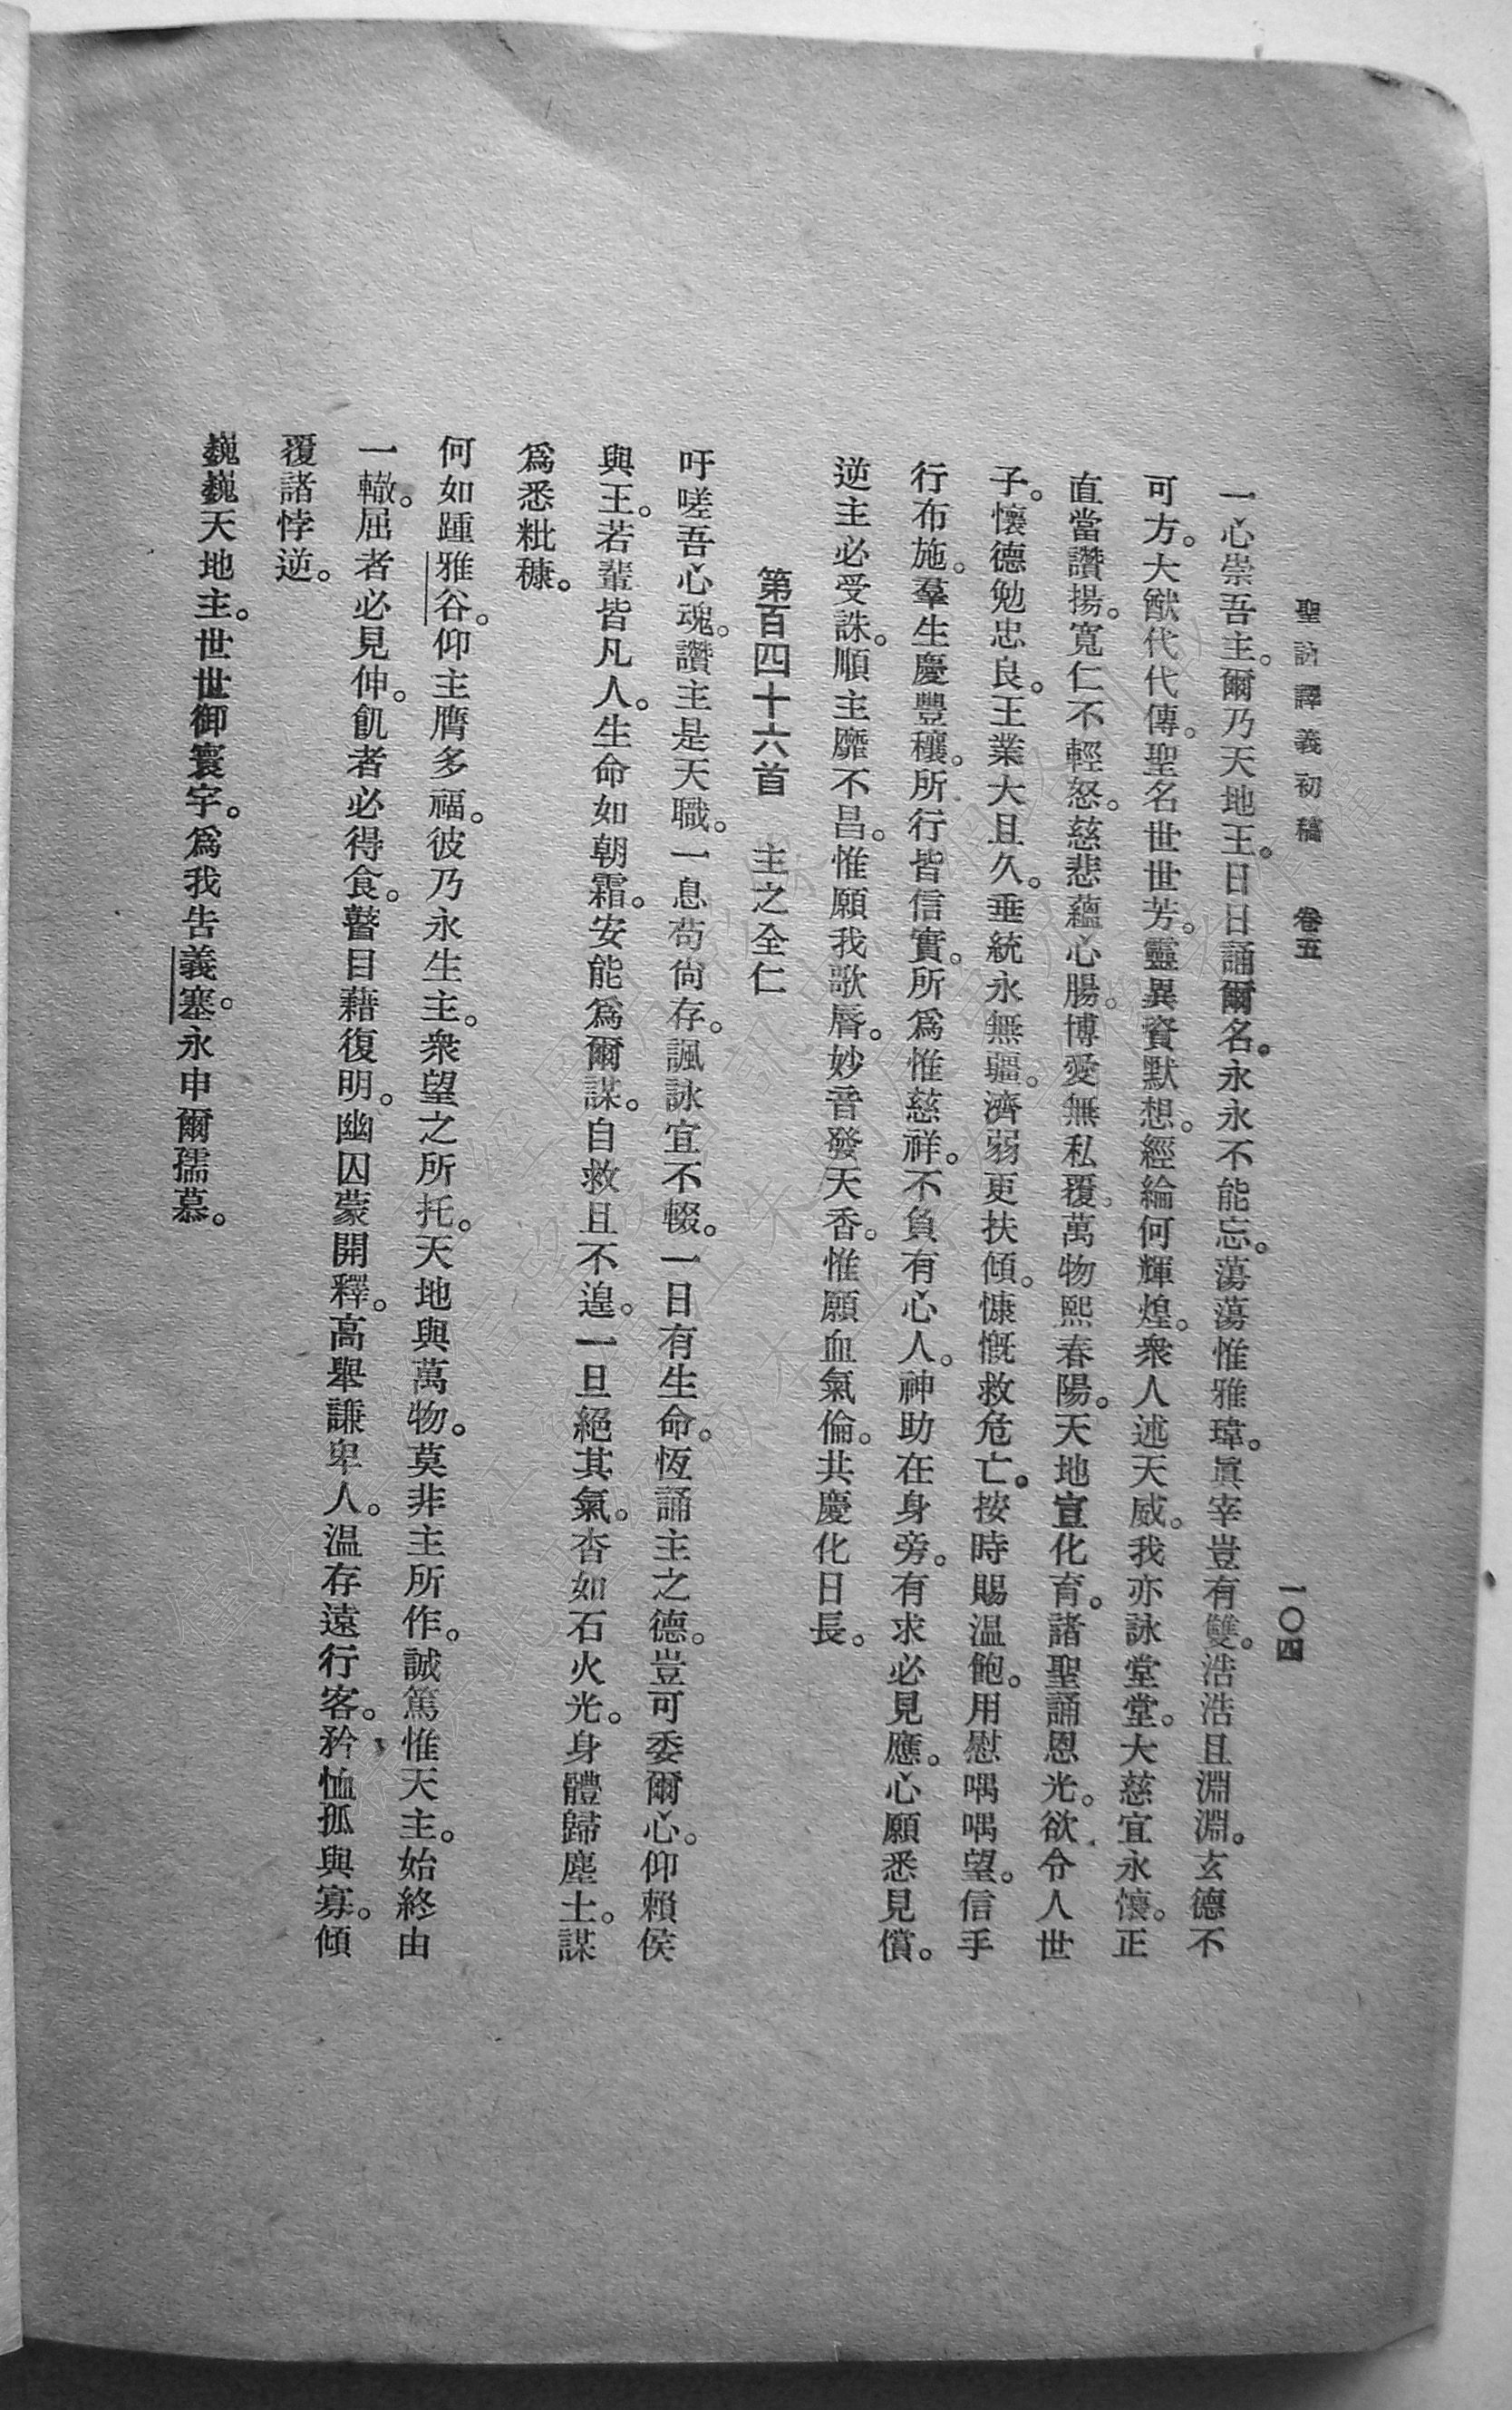 聖詠譯義初稿　卷五　一〇四
一心崇吾主。爾乃天地王。日日誦爾名。永永不能忘。蕩蕩惟雅瑋。眞宰豈有雙。浩浩且淵淵。玄德不
可方。大猷代代傳。聖名世世芳。靈異資默想。經綸何輝煌。衆人述天威。我亦詠堂堂。大慈宜永懷。正
直當讚揚。寬仁不輕怒。慈悲蘊心腸。博愛無私覆。萬物熙春陽。天地宣化育。諸聖誦恩光。欲令人世
子。懷德勉忠良。王業大且久。垂統永無疆。濟弱更扶傾。慷慨救危亡。按時賜溫飽。用慰喁喁望。信手
行布施。羣生慶豐穰。所行皆信實。所爲惟慈祥。不負有心人。神助在身旁。有求必見應。心願悉見償。
逆主必受誅。順主靡不昌。惟願我歌脣。妙音發天香。惟願血氣倫。共慶化日長。
第百四十六首　主之全仁
吁嗟吾心魂。讚主是天職。一息苟尙存。諷詠宜不輟。一日有生命。恆誦主之德。豈可委爾心。仰賴侯
與王。若輩皆凡人。生命如朝霜。安能爲爾謀。自救且不遑。一旦絕其氣。杳如石火光。身體歸塵土。謀
爲悉粃糠。
何如踵雅谷。仰主膺多福。彼乃永生主。衆望之所托。天地與萬物。莫非主所作。誠篤惟天主。始終由
一轍。屈者必見伸。飢者必得食。瞽目藉復明。幽囚蒙開釋。高舉謙卑人。溫存遠行客。矜恤孤與寡。傾
覆諸悖逆。
巍巍天地主。世世御寰宇。爲我告義塞。永申爾孺慕。